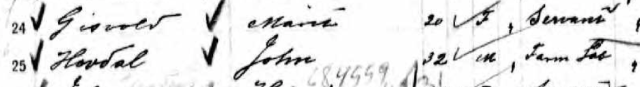 24 Gisvold Marit 20 F " Servant "
25 Hovdal John 32 M " Farm Lab "
684559